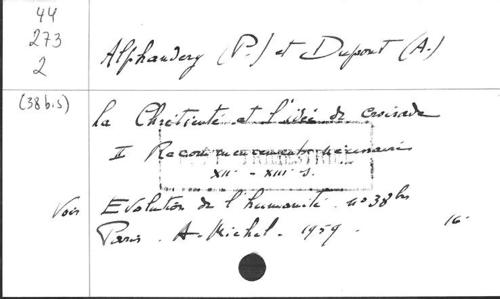 44
273
2
Alphandery (P.) et Dupont (A.)
(38 bis)
La Chrétienté et l'idée de croisade
II Recommencements nécessaires
XIIe - XIIIe s.
TRIMESTRIEL
Voir Evolution de l'humanité. n° 38 bis
Paris. A. Michel. 1959. 16.